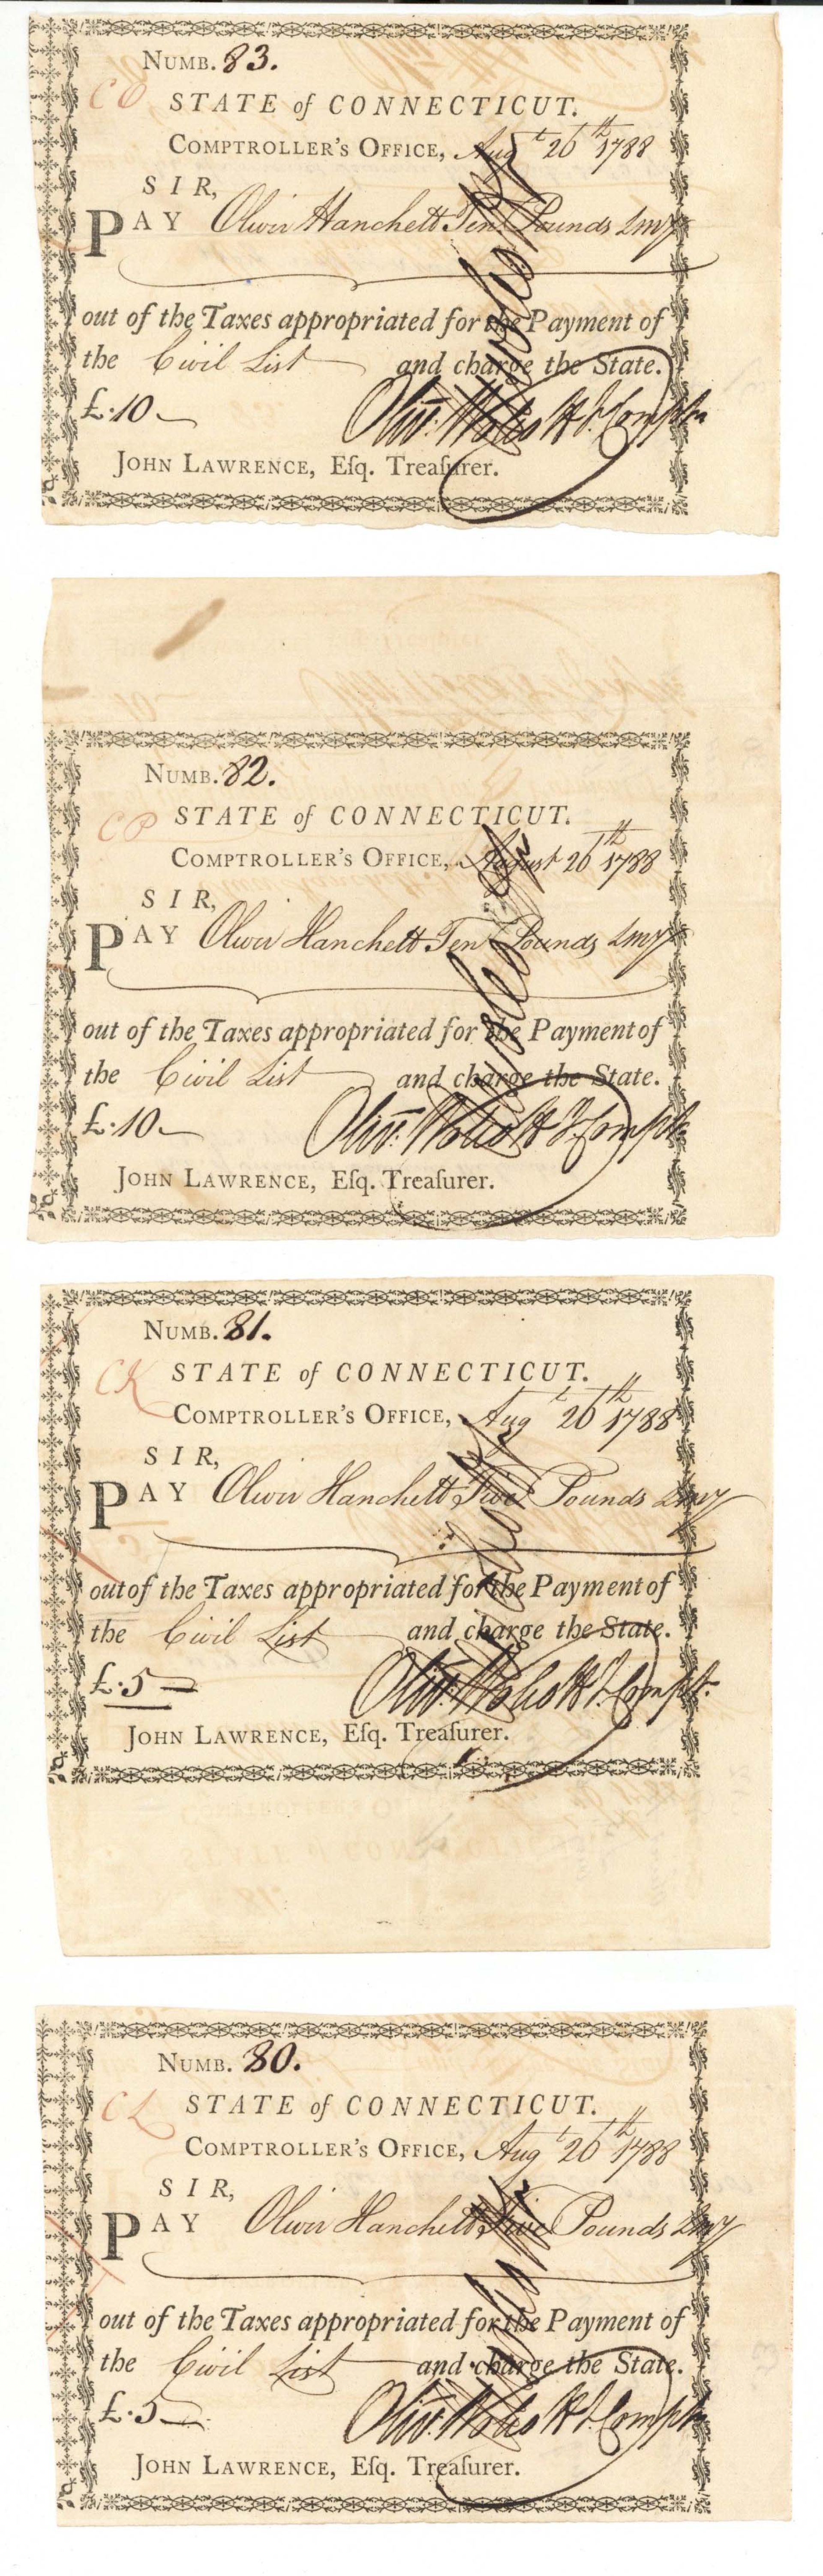 NUMB. 83.
CO
STATE of CONNECTICUT.
COMPTROLLER'S OFFICE, Augt 26th 1788
SIR,
PAY Oliver Hanchett Ten Pounds Lmy
out of the Taxes appropriated for the Payment of
the Civil List and charge the State.
£.10
Olivr. Wolcott Jr. Comptr
JOHN LAWRENCE, Eſq. Treaſurer.
NUMB. 82.
CP
STATE of CONNECTICUT.
COMPTROLLER'S OFFICE, August 26th 1788
SIR,
PAY Oliver Hanchett Ten Pounds Lmy
out of the Taxes appropriated for the Payment of
the Civil List and charge the State.
£.10
Olivr. Wolcott Jr Comptr
JOHN LAWRENCE, Eſq. Treaſurer.
NUMB. 81.
CK
STATE of CONNECTICUT.
COMPTROLLER'S OFFICE, Augt 26th 1788
SIR,
PAY Oliver Hanchett Five Pounds Lmy
out of the Taxes appropriated for the Payment of
the Civil List and charge the State.
£.5
Olivr. Wolcott Jr. Compt.
JOHN LAWRENCE, Eſq. Treaſurer.
NUMB. 80.
CL
STATE of CONNECTICUT.
COMPTROLLER'S OFFICE, Augt 26th 1788
SIR,
PAY Oliver Hanchett Five Pounds Lmy
out of the Taxes appropriated for the Payment of
the Civil List and charge the State.
£.5
Olivr. Wolcott Jr. Comptr
JOHN LAWRENCE, Eſq. Treaſurer.